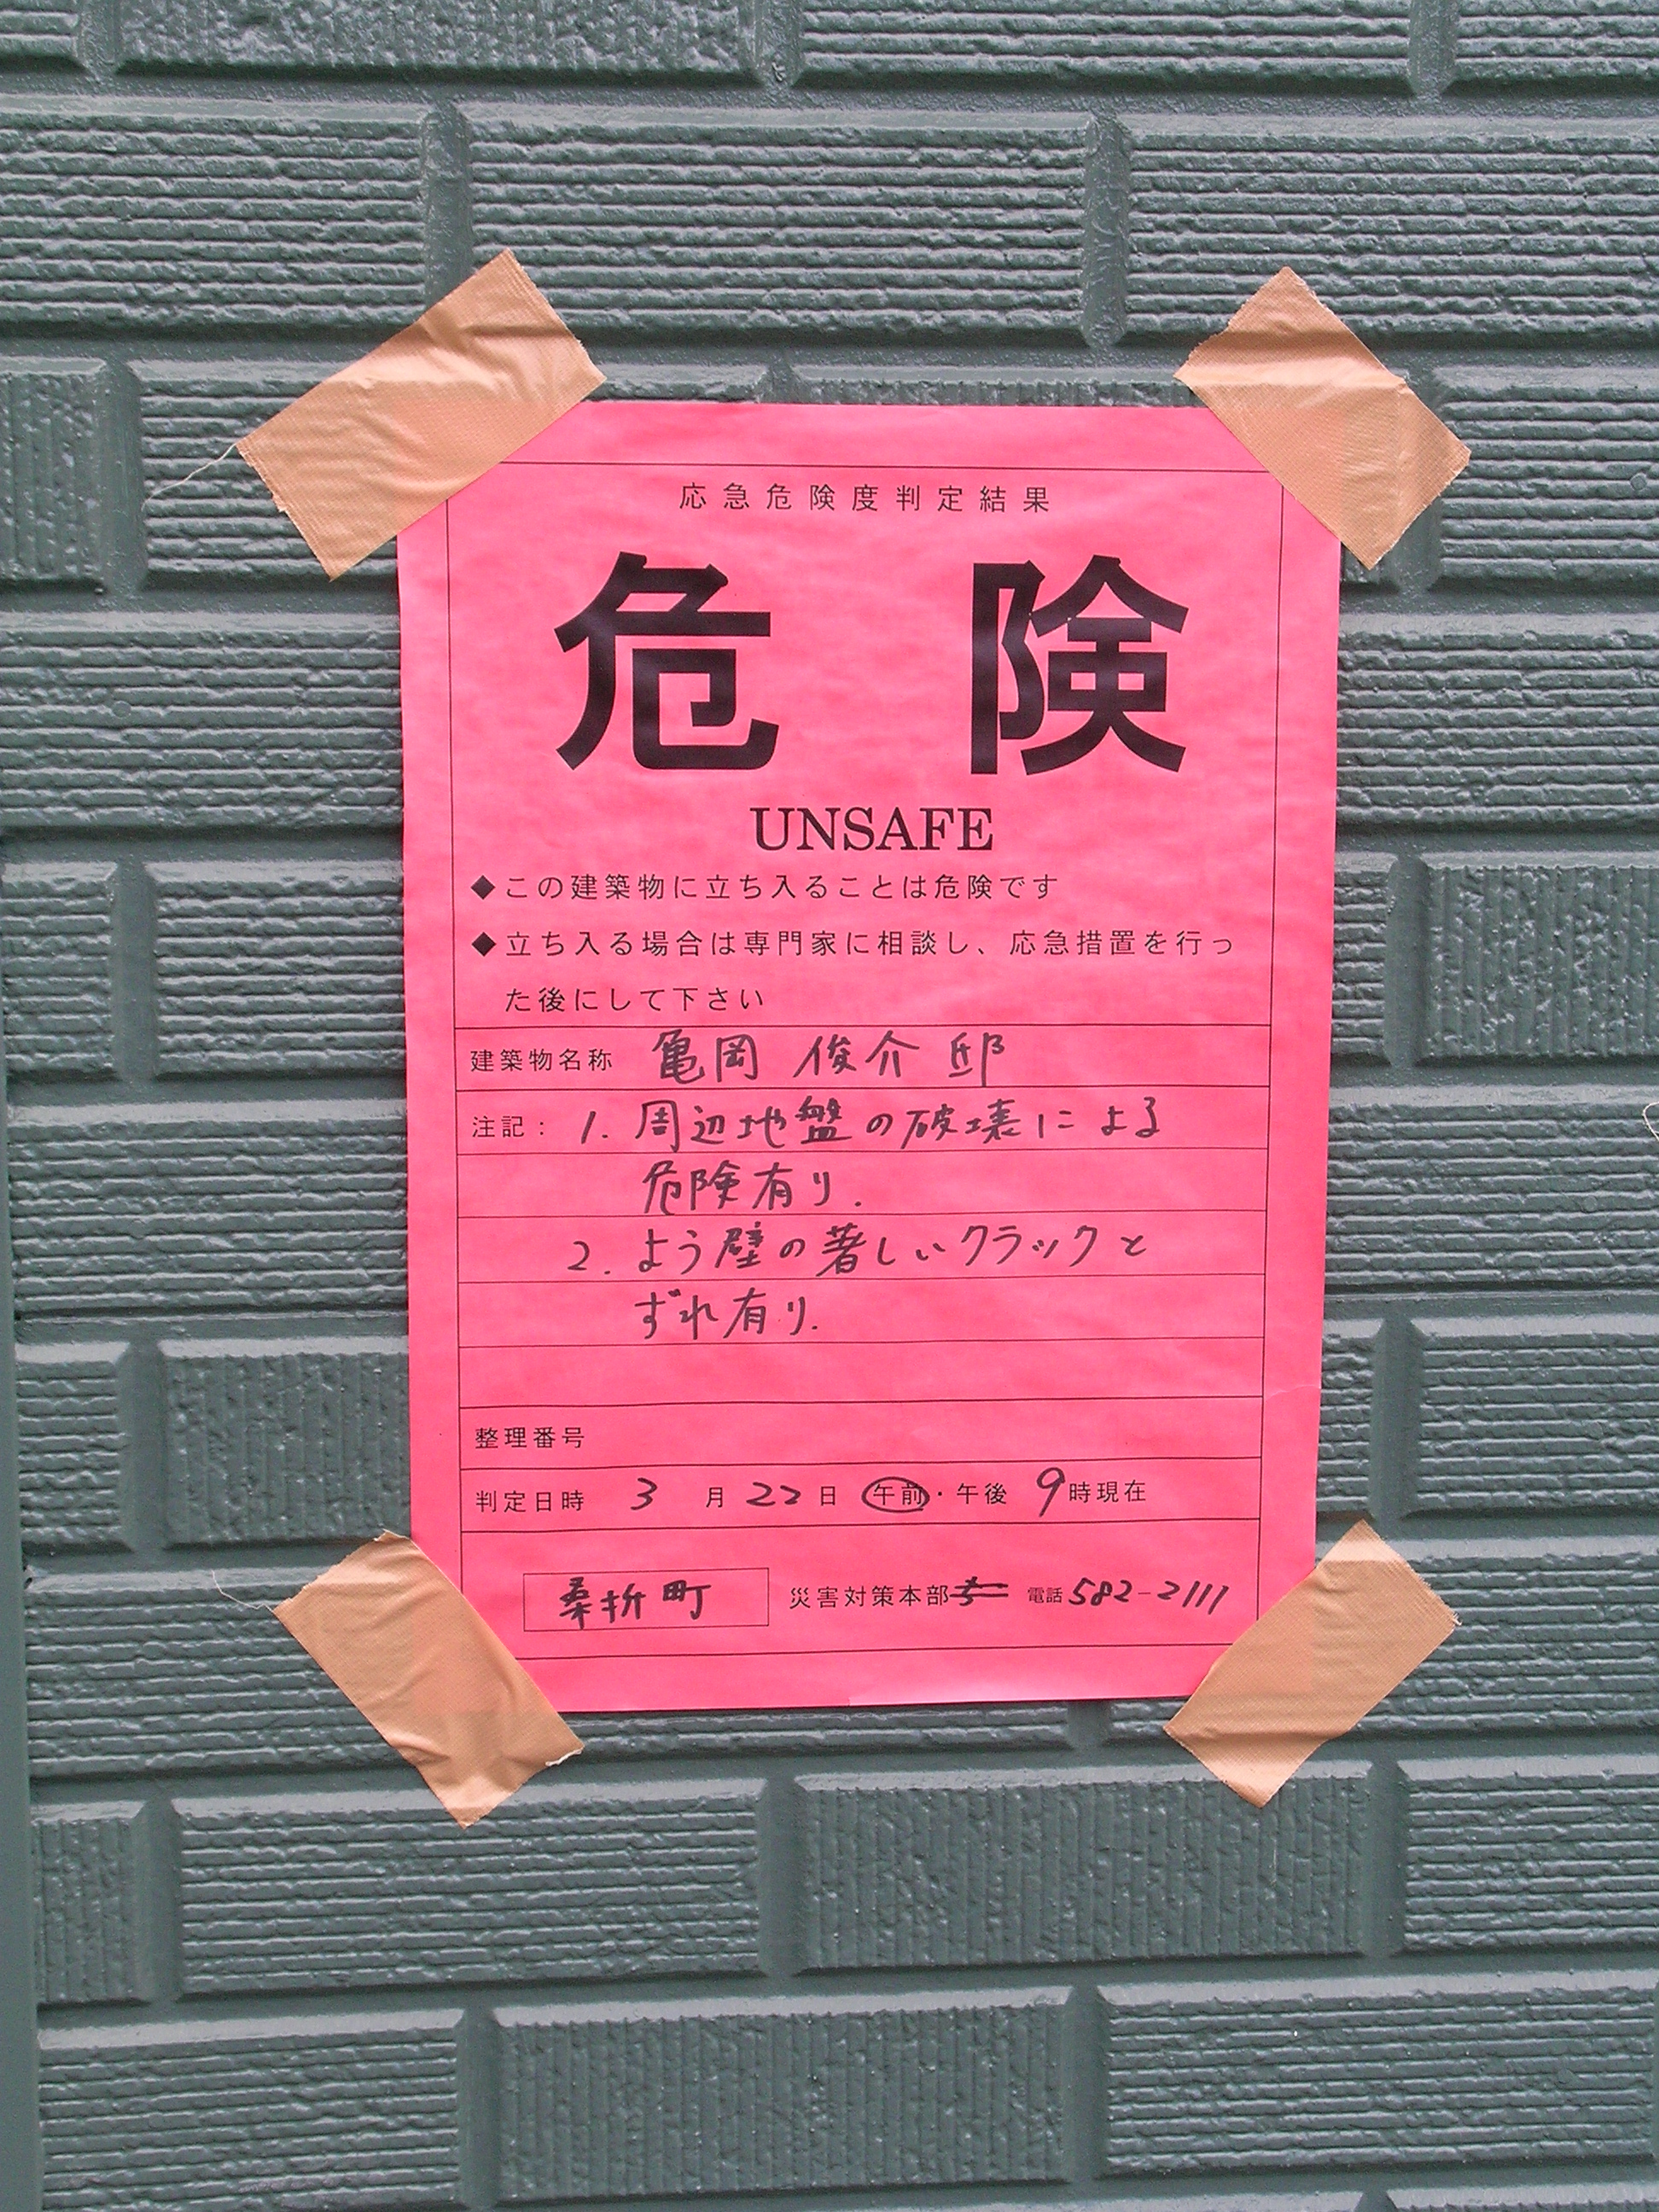 応急危険度判定結果
危険
UNSAFE
◆この建築物に立ち入ることは危険です
◆立ち入る場合は専門家に相談し、応急措置を行っ
た後にして下さい
建築物名称 亀岡 俊介 邸
注記： 1. 周辺地盤の破壊による
危険有り.
2. よう壁の著しいクラックと
ずれ有り.
整理番号
判定日時 3 月 22 日 午前・午後 9 時現在
桑折町 災害対策本部 電話 582-2111